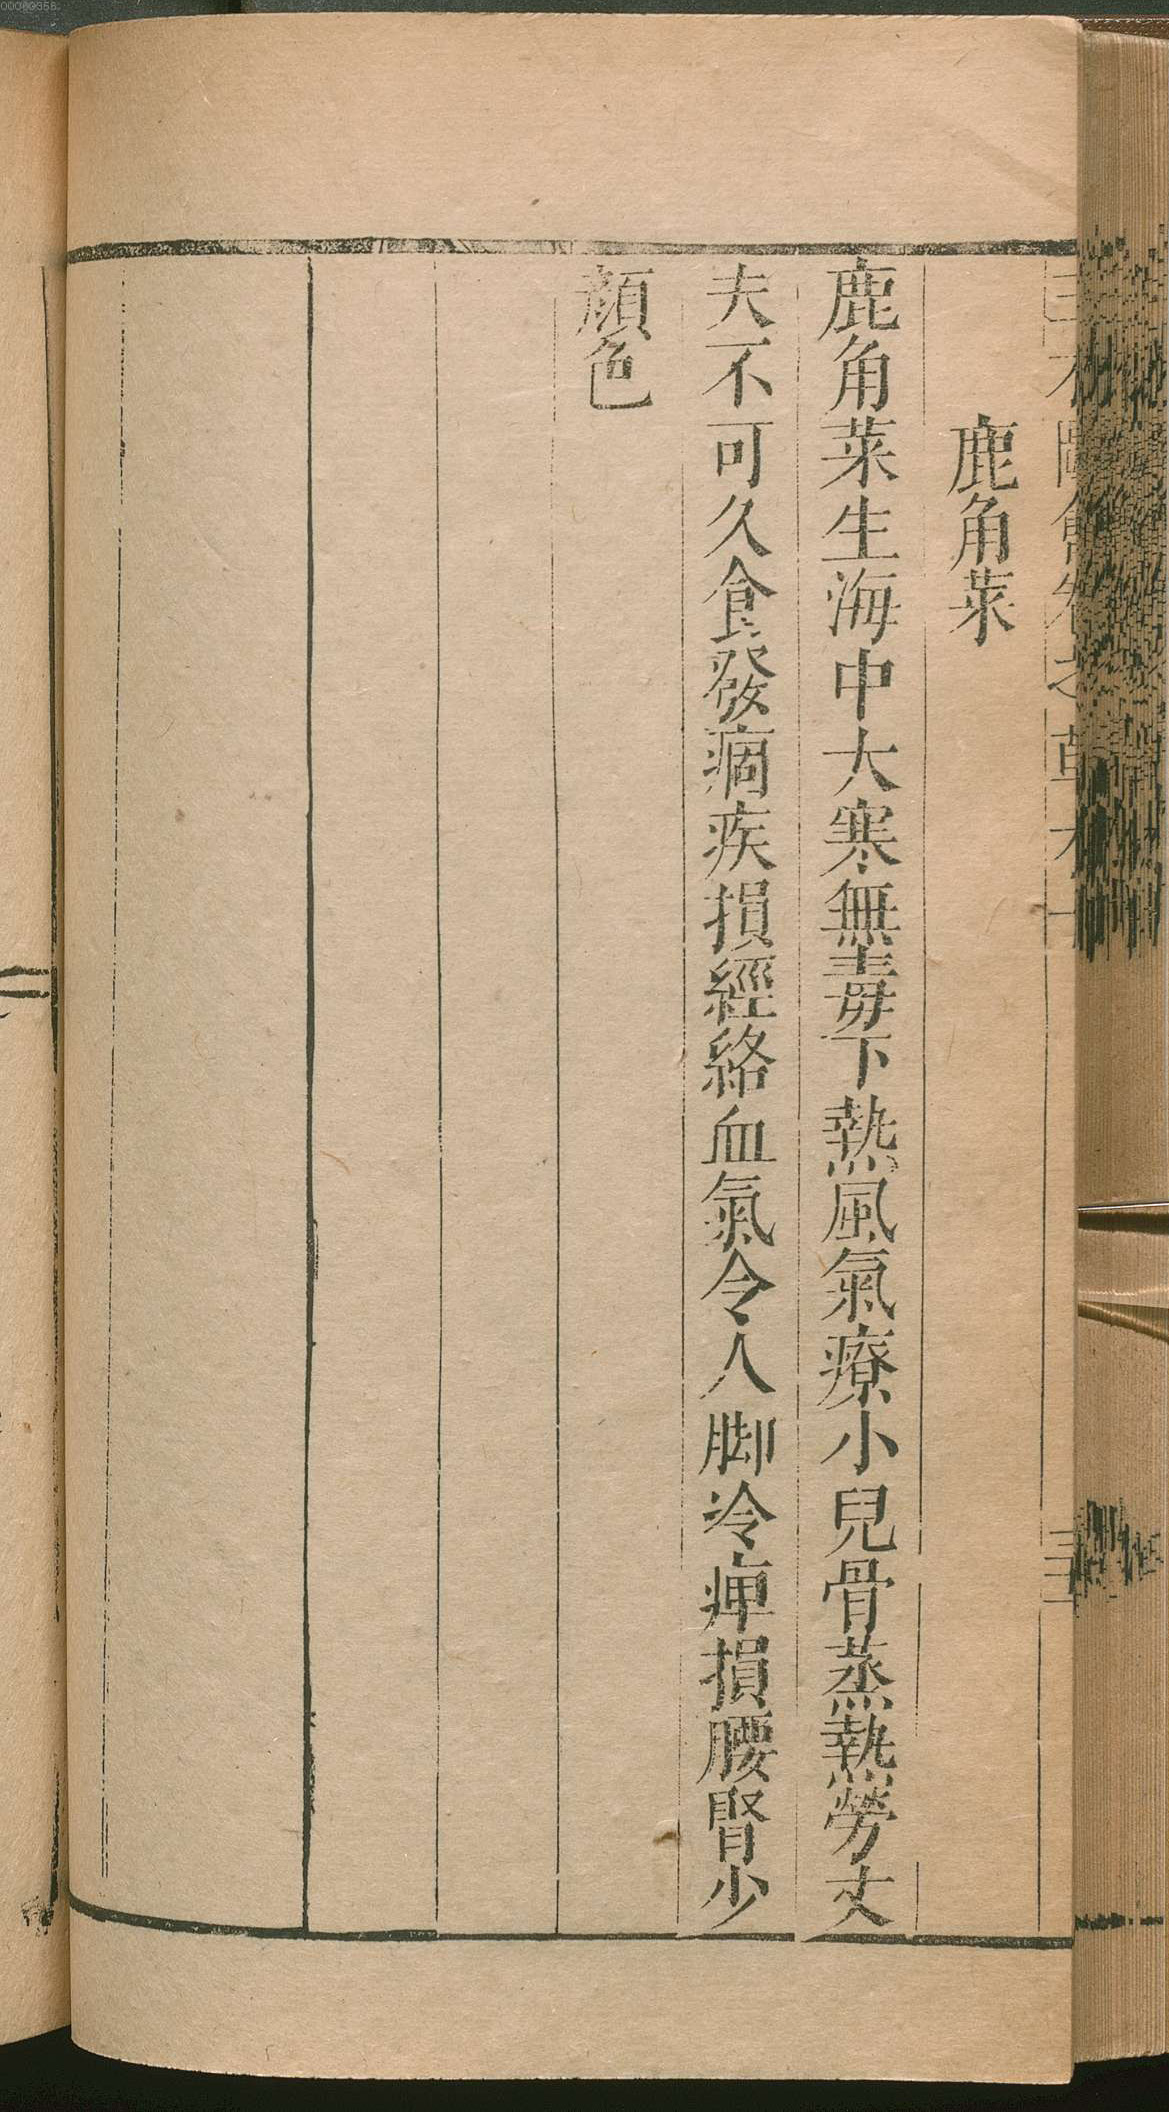 鹿角菜
鹿角菜生海中大寒無毒下熱風氣療小兒骨蒸熱勞丈
夫不可久食發痼疾損經絡血氣令人脚冷痺損腰腎少
顔色